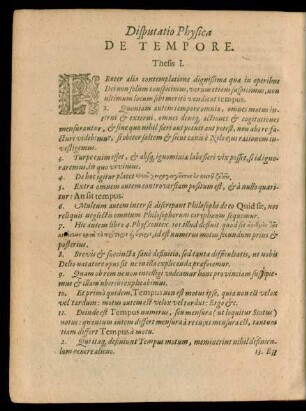 Disputatio Physica
DE TEMPORE.
Thesis I.
PRæter alia contemplatione dignissima quæ in operibus
Dei non solum suspicimus, verùm etiam suspicimus, non
ultimum locum sibi meritò vendicat tempus.
2. Quoniam autem tempore omnia, omnes motus in-
terni & externi, omnes deniq; actiones & cogitationes
mensurantur, & sine quo nihil fieri aut potuit aut potest, non abs re fa-
cturi videbimur, si obiter saltem & secundùm rationem in-
vestigemus.
3. Turpe enim esset, & absq; ignominiæ labe fieri vix posset, si id igno-
raremus, in quo vivimus.
4. De hoc igitur placet
5. Extra omnem autem controversiam positum est, & à nullo quæri-
tur: An sit tempus.
6. Multum autem inter se discrepant Philosophi de τὸ Quid sit, nos
reliquis neglectis omnium Philosophorum coryphæum sequemur.
7. Hic autem libro 4. Phys. cuncx. 101. illud definit quod sit
id est numerus motus secundùm prius &
posterius.
8. Brevis & succincta sanè definitio, sed tanta difficultatis, ut nobis
Delio natatore opus sit in illis explicandis præfatemur.
9. Quam ob rem ne non intelligi videamur hanc provinciam suscipie-
mus & illam uberius explicabimus.
10. Et primò quidem, Tempus non est motus ipse, quia non est velox
vel tardum: motus autem est velox vel tardus: Ergo &c.
11. Deinde est Tempus numerus, seu mensura (ut loquitur Scotus)
motus: quantum autem differt mensura à re cujus mensura est, tantum
etiam differt Tempus à motu.
12. Qui itaq; definiunt Tempus motum, meminerint nihil desinen-
dum genere alieno.
13. Est